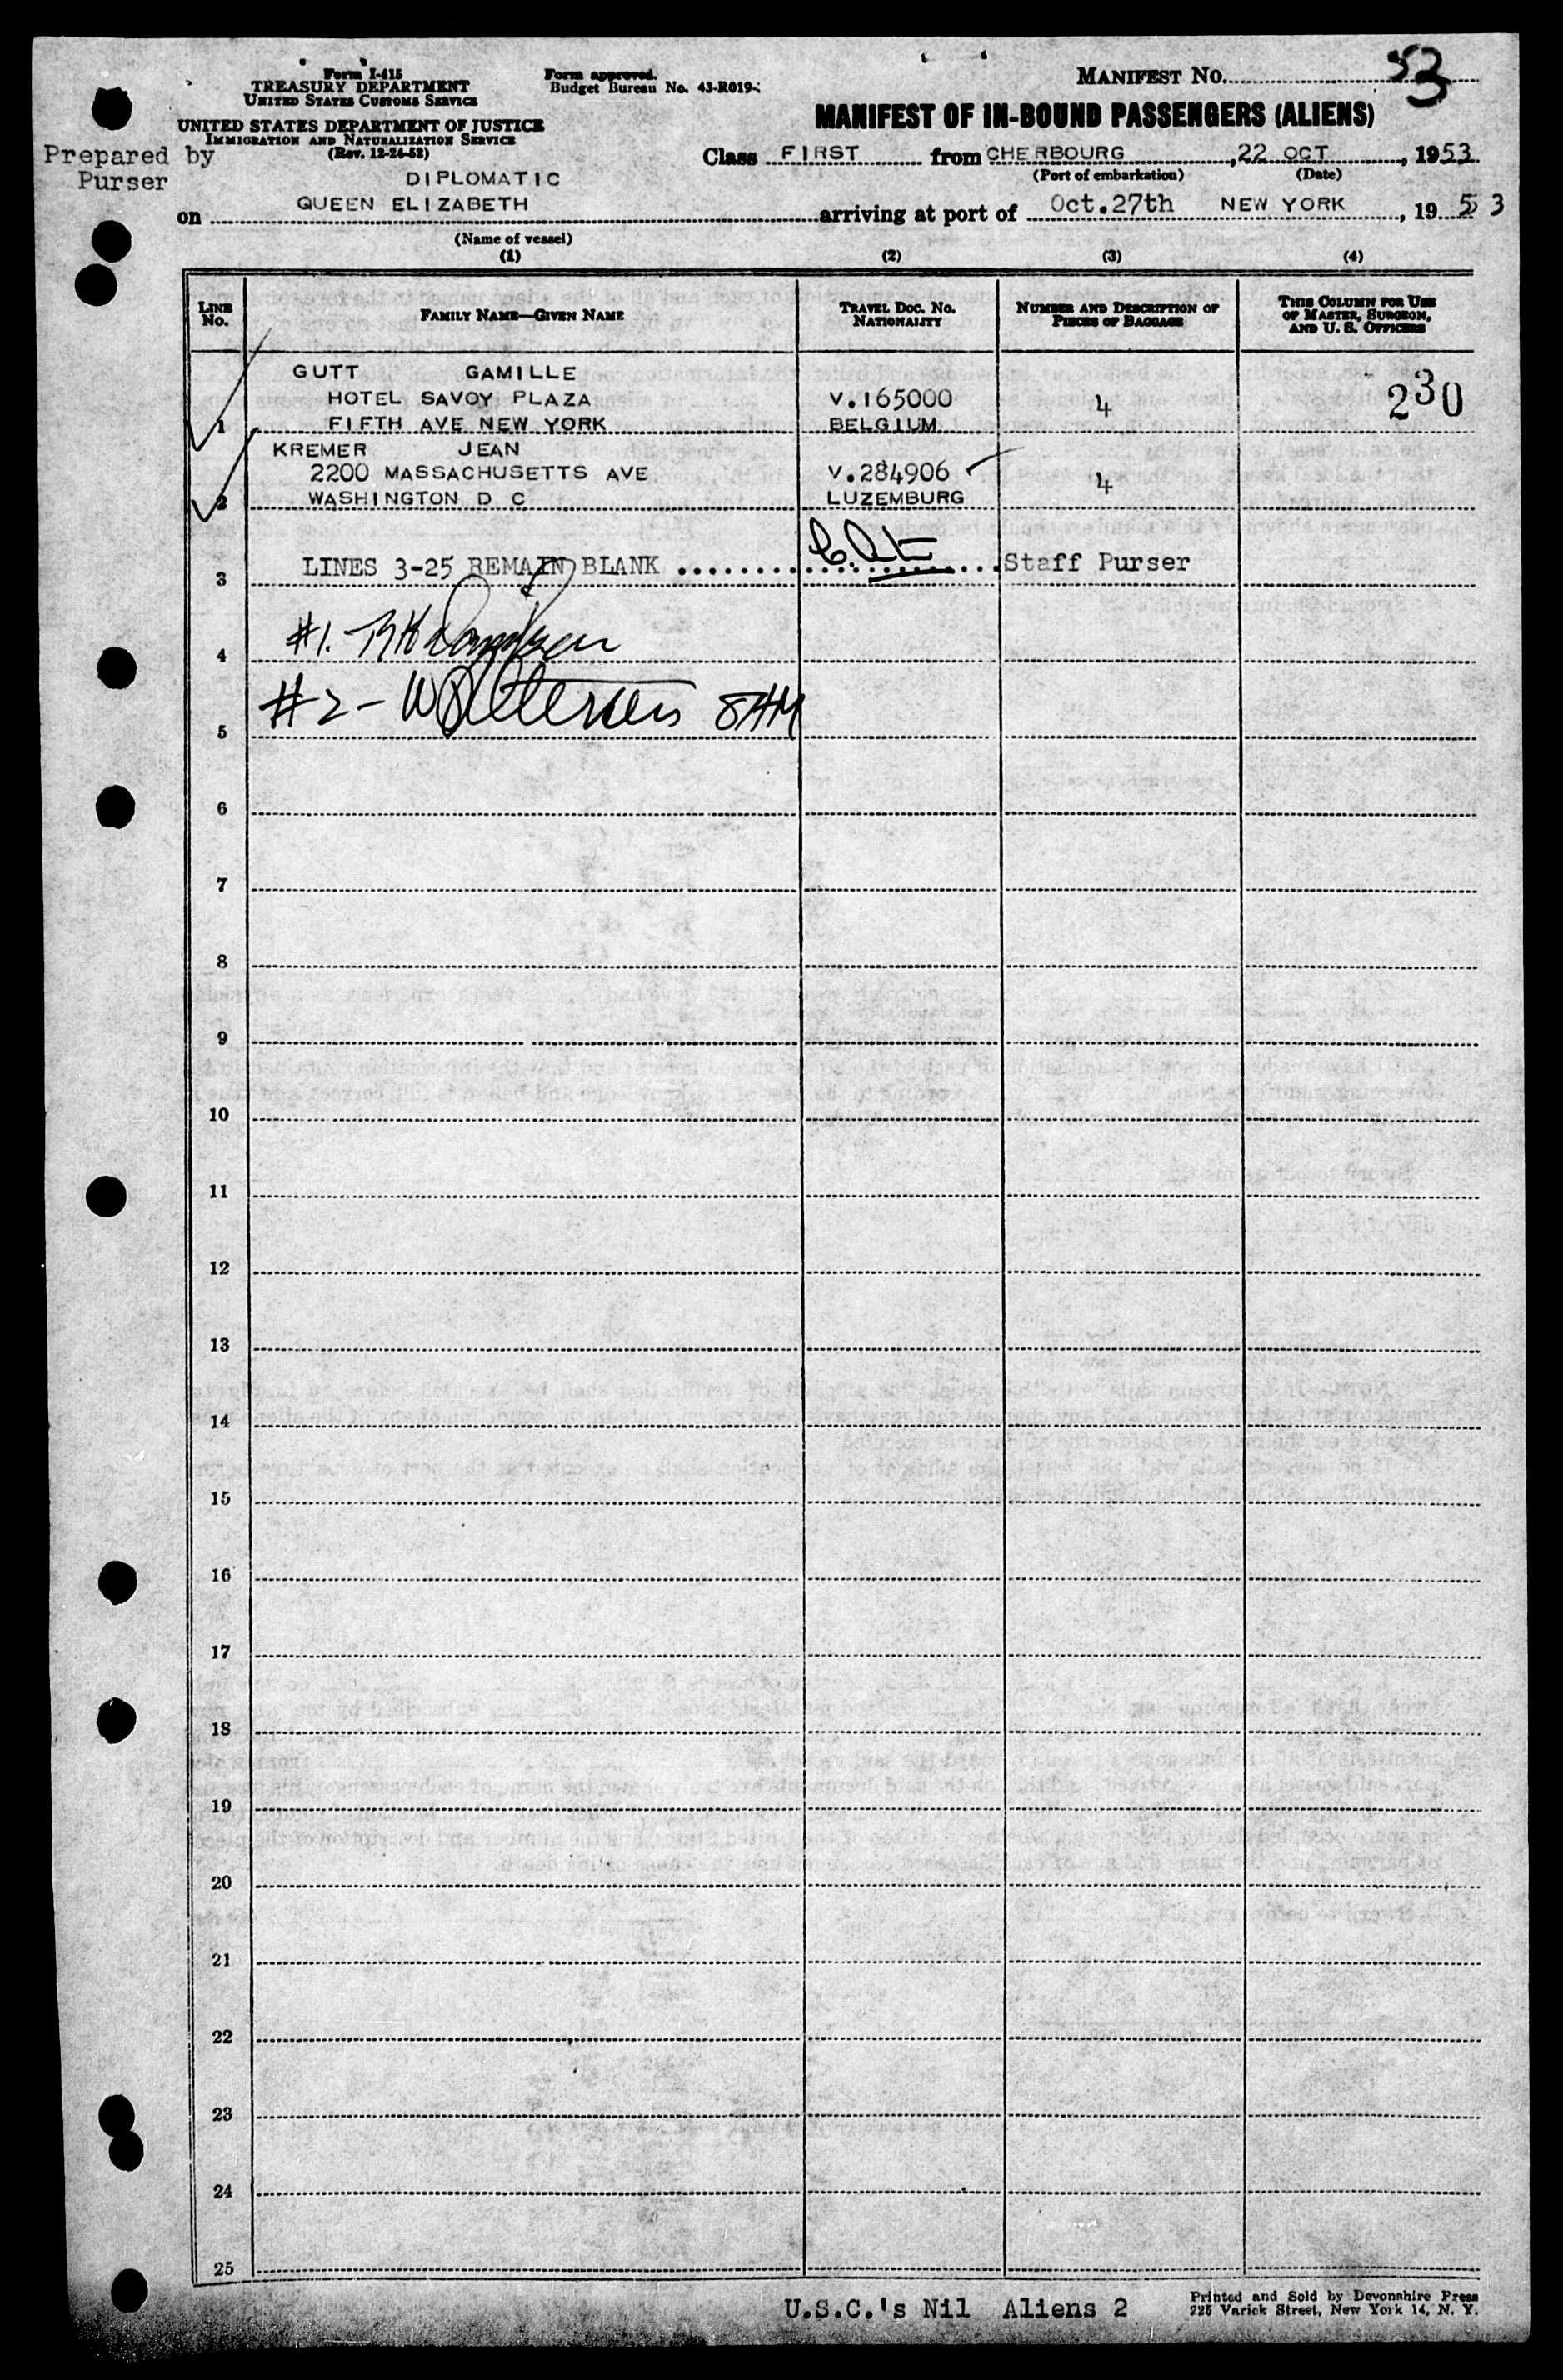 Form I-415
TREASURY DEPARTMENT
UNITED STATES CUSTOMS SERVICE
UNITED STATES DEPARTMENT OF JUSTICE
IMMIGRATION AND NATURALIZATION SERVICE
(Rev. 12-24-52)
Form approved.
Budget Bureau No. 43-R019-
MANIFEST NO. 53
MANIFEST OF IN-BOUND PASSENGERS (ALIENS)
Prepared by
Purser
Class FIRST from CHERBOURG, 22 OCT, 1953
(Port of embarkation) (Date)
DIPLOMATIC
on QUEEN ELIZABETH arriving at port of Oct.27th NEW YORK, 19 53
(Name of vessel)
(1) (2) (3) (4)
LINE No. FAMILY NAME—GIVEN NAME TRAVEL DOC. NO. NATIONALITY NUMBER AND DESCRIPTION OF PIECES OF BAGGAGE THIS COLUMN FOR USE OF MASTER, SURGEON, AND U. S. OFFICERS
GUTT GAMILLE
HOTEL SAVOY PLAZA V.165000 4 230
1 FIFTH AVE NEW YORK BELGIUM
KREMER JEAN
2200 MASSACHUSETTS AVE V.284906 4
2 WASHINGTON D C LUZEMBURG
3 LINES 3-25 REMAIN BLANK Staff Purser
4 #1.
5 #2-
6
7
8
9
10
11
12
13
14
15
16
17
18
19
20
21
22
23
24
25
U.S.C.'s Nil Aliens 2
Printed and Sold by Devonshire Press
225 Varick Street, New York 14, N. Y.